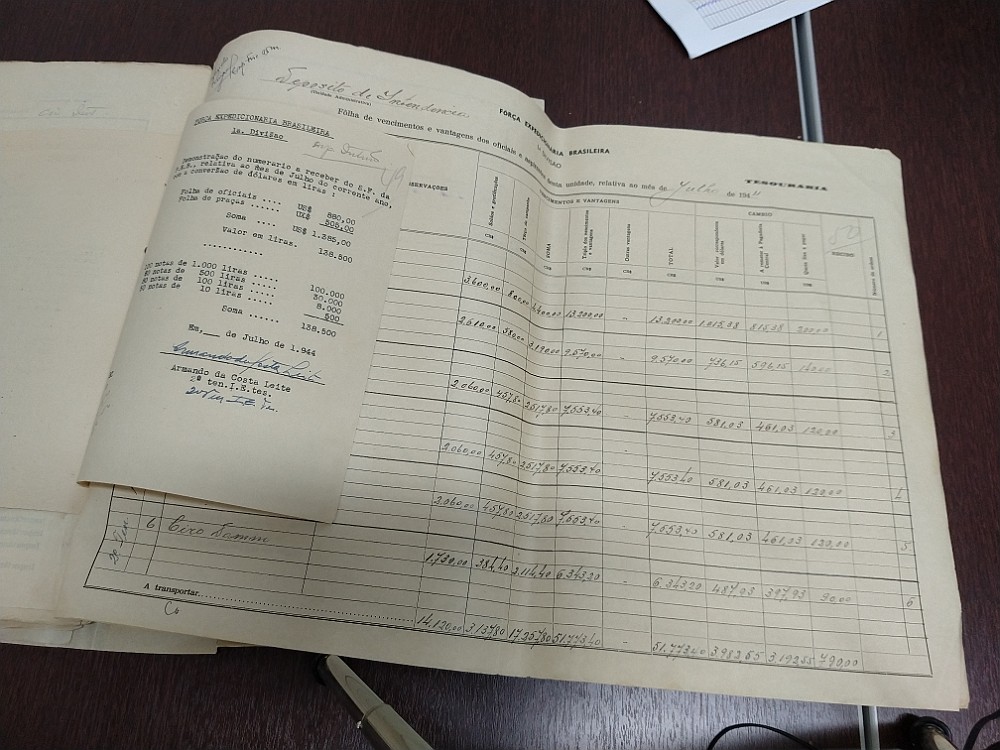 FÔRÇA EXPEDICIONARIA BRASILEIRA
1a. Divisão
Demonstração do numerario a receber do S.F. da
relativa ao mes de Julho do corrente ano,
com a conversão de dólares em liras :
Folha de oficiais .... US$ 880,00
Folha de praças ...... US$ 505,00
Soma .... US$ 1.385,00
Valor em liras. 138.500
..........
100 notas de 1.000 liras ..... 100.000
notas de 500 liras ..... 30.000
notas de 100 liras ..... 8.000
notas de 10 liras ..... 500
Soma ...... 138.500
Em,___ de Julho de 1.944
Armando da Costa Leite
Armando da Costa Leite
2º ten.I.E.tes.
Deposito de Intendencia
(Unidade Administrativa)
FÔRÇA EXPEDICIONARIA BRASILEIRA
1ª DIVISÃO
TESOURARIA
Fôlha de vencimentos e vantagens dos oficiais e desta unidade, relativa ao mês de Julho de 1944
VENCIMENTOS E VANTAGENS
CAMBIO
OBSERVAÇÕES
Soldos e gratificações
SOMA
Outras vantagens
TOTAL
Valor correspondente em dólares
A remeter à Pagadoria Central
RECIBO
Número de ordem
3.600,00 800,00 4.400,00 13.200,00 - 13.200,00 1.015,38 815,38 200,00 1
2.610,00 580,00 3.190,00 9.570,00 - 9.570,00 736,15 596,15 140,00 2
2.060,00 457,80 2.517,80 7.553,40 - 7.553,40 581,03 461,03 120,00 3
2.060,00 457,80 2.517,80 7.553,40 - 7.553,40 581,03 461,03 120,00 4
2.060,00 457,80 2.517,80 7.553,40 - 7.553,40 581,03 461,03 120,00 5
2º Ten. 6 1.730,00 384,40 2.114,40 6.343,20 - 6.343,20 487,93 397,93 90,00 6
A transportar 14.120,00 3.137,80 17.257,80 51.773,40 - 51.773,40 3.982,55 3.192,55 790,00